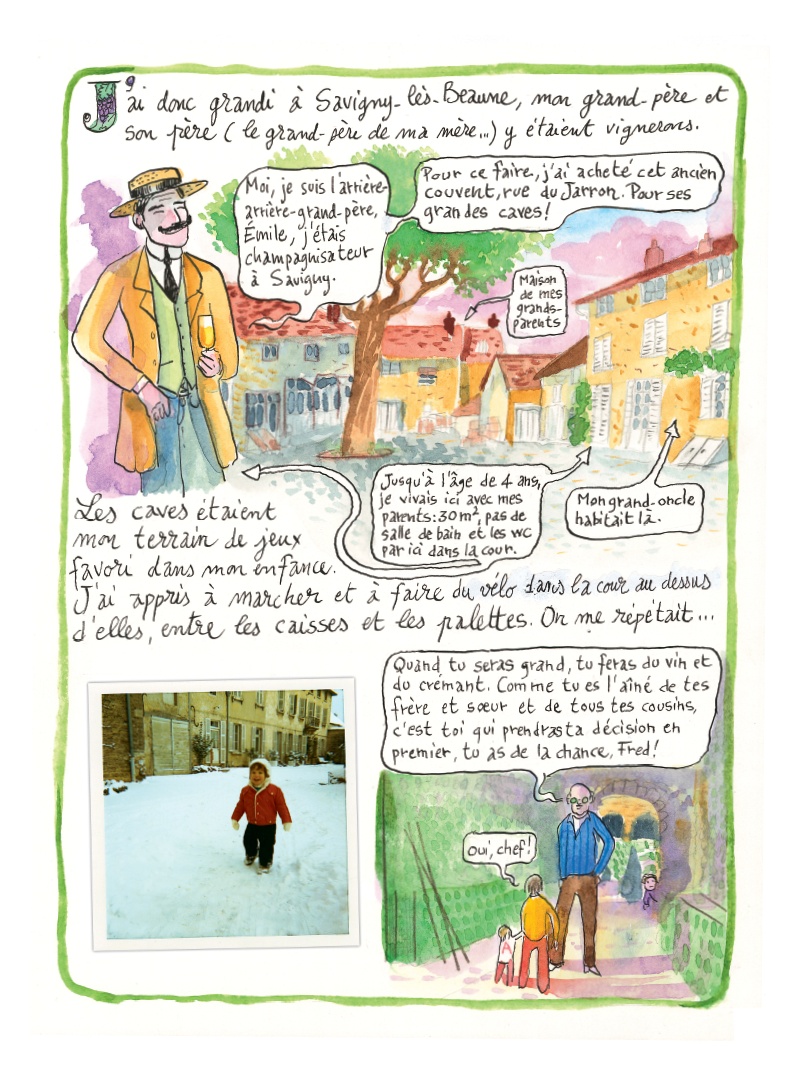 J'ai donc grandi à Savigny-lès-Beaune, mon grand-père et
son père (le grand-père de ma mère...) y étaient vignerons.
Moi, je suis l'arrière-
arrière-grand-père,
Émile, j'étais
champagnisateur
à Savigny.
Pour ce faire, j'ai acheté cet ancien
couvent, rue du Jarron. Pour ses
grandes caves!
Maison
de mes
grands-
parents
Jusqu'à l'âge de 4 ans,
je vivais ici avec mes
parents: 30 m², pas de
salle de bain et les WC
par ici dans la cour.
Mon grand-oncle
habitait là.
Les caves étaient
mon terrain de jeux
favori dans mon enfance.
J'ai appris à marcher et à faire du vélo dans la cour au dessus
d'elles, entre les caisses et les palettes. On me répétait...
Quand tu seras grand, tu feras du vin et
du crémant. Comme tu es l'aîné de tes
frère et sœur et de tous tes cousins,
c'est toi qui prendras ta décision en
premier, tu as de la chance, Fred!
Oui, chef!